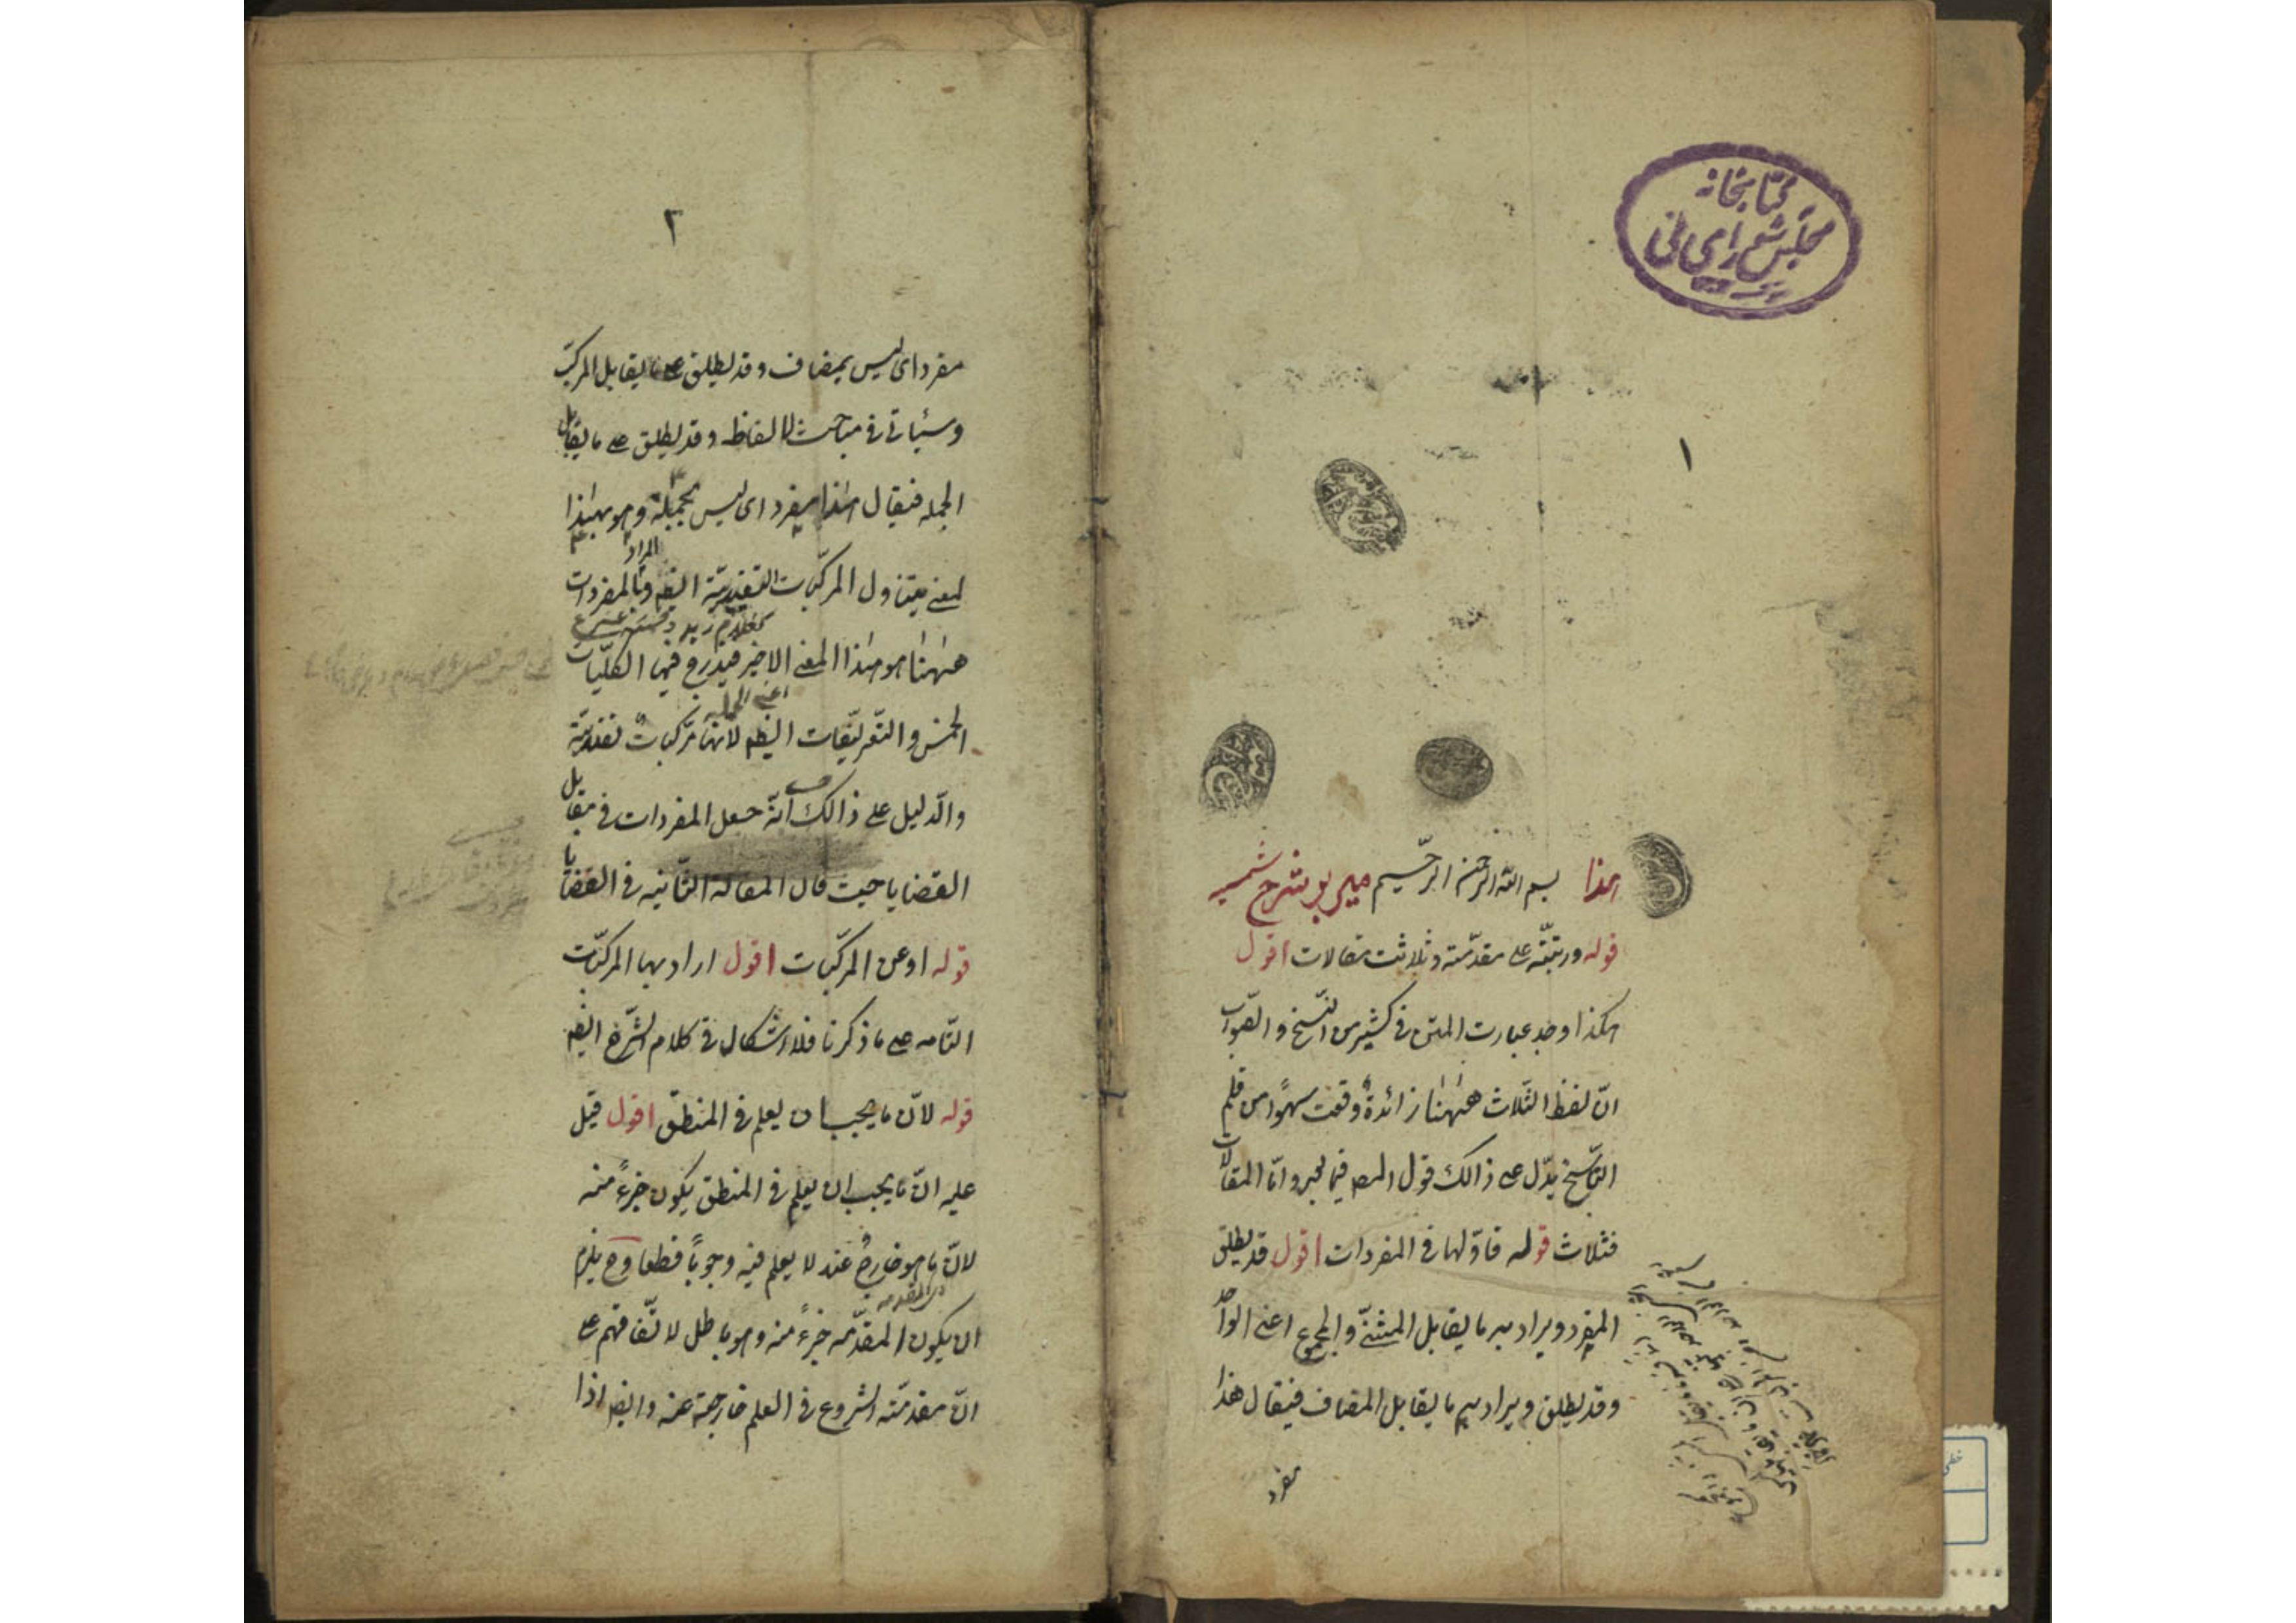 کتابخانه
مجلس شورای ملی
١
هذا بسم الله الرحمن الرّحیم میر بر شرح شمسیه
قوله ورتبته علی مقدّمته وثلاثت مقالات اقول
هکذا وجد عبارت المتن فی کثیر من النّسخ والصّواب
انّ لفظ الثّلاث هٰهنا زائدةٌ وقعت سهوًا من قلم
النّاسخ یدّل علی ذالک قول المصـ فیما بعد وامّا المقالات
فثلاث قوله فاوّلها فی المفردات اقول قد یطلق
المفرد ویراد به ما یقابل المثنّی والمجموع اعنی الواحد
وقد یطلق ویراد به ما یقابل المضاف فیقال هذا
مفرد
٢
مفرد ای لیس بمضاف وقد یطلق علی ما یقابل المرکّب
وسیأتی فی مباحث الالفاظ وقد یطلق علی ما یقابل
الجمله فیقال هذا مفرد ای لیس بجمله وهو بهذا
المعنی یتناول المرکّبات التقیدیّة ایضـ والمراد بالمفردات
کغلام زید
هٰهنا هو هذا المعنی الاخیر فیندرج فیها الکلّیات
اعنی الجمله
الخمس والتّعریفات ایضـ لانّها مرّکباتٌ تقیدیّة
والدّلیل علی ذالک انّه جعل المفردات فی مقابل
القضایا حیث قال المقالة الثّانیه فی القضایا
قوله او عن المرکّبات اقول اراد بها المرکّبات
التّامه علی ما ذکرنا فلا اشکال فی کلام الشّرح ایضـ
قوله لانّ ما یجب ان یعلم فی المنطق اقول قیل
علیه انّ ما یجب ان یعلم فی المنطق یکون جزءً منه
لانّ ما هو خارجٌ عنه لا یعلم فیه وجوبًا قطعا وح یلزم
ان یکون المقدّمه جزءً منه وهو باطل لاتّفاقهم علی
انّ مقدّمته الشروع فی العلم خارجة عنه وایضـ اذا